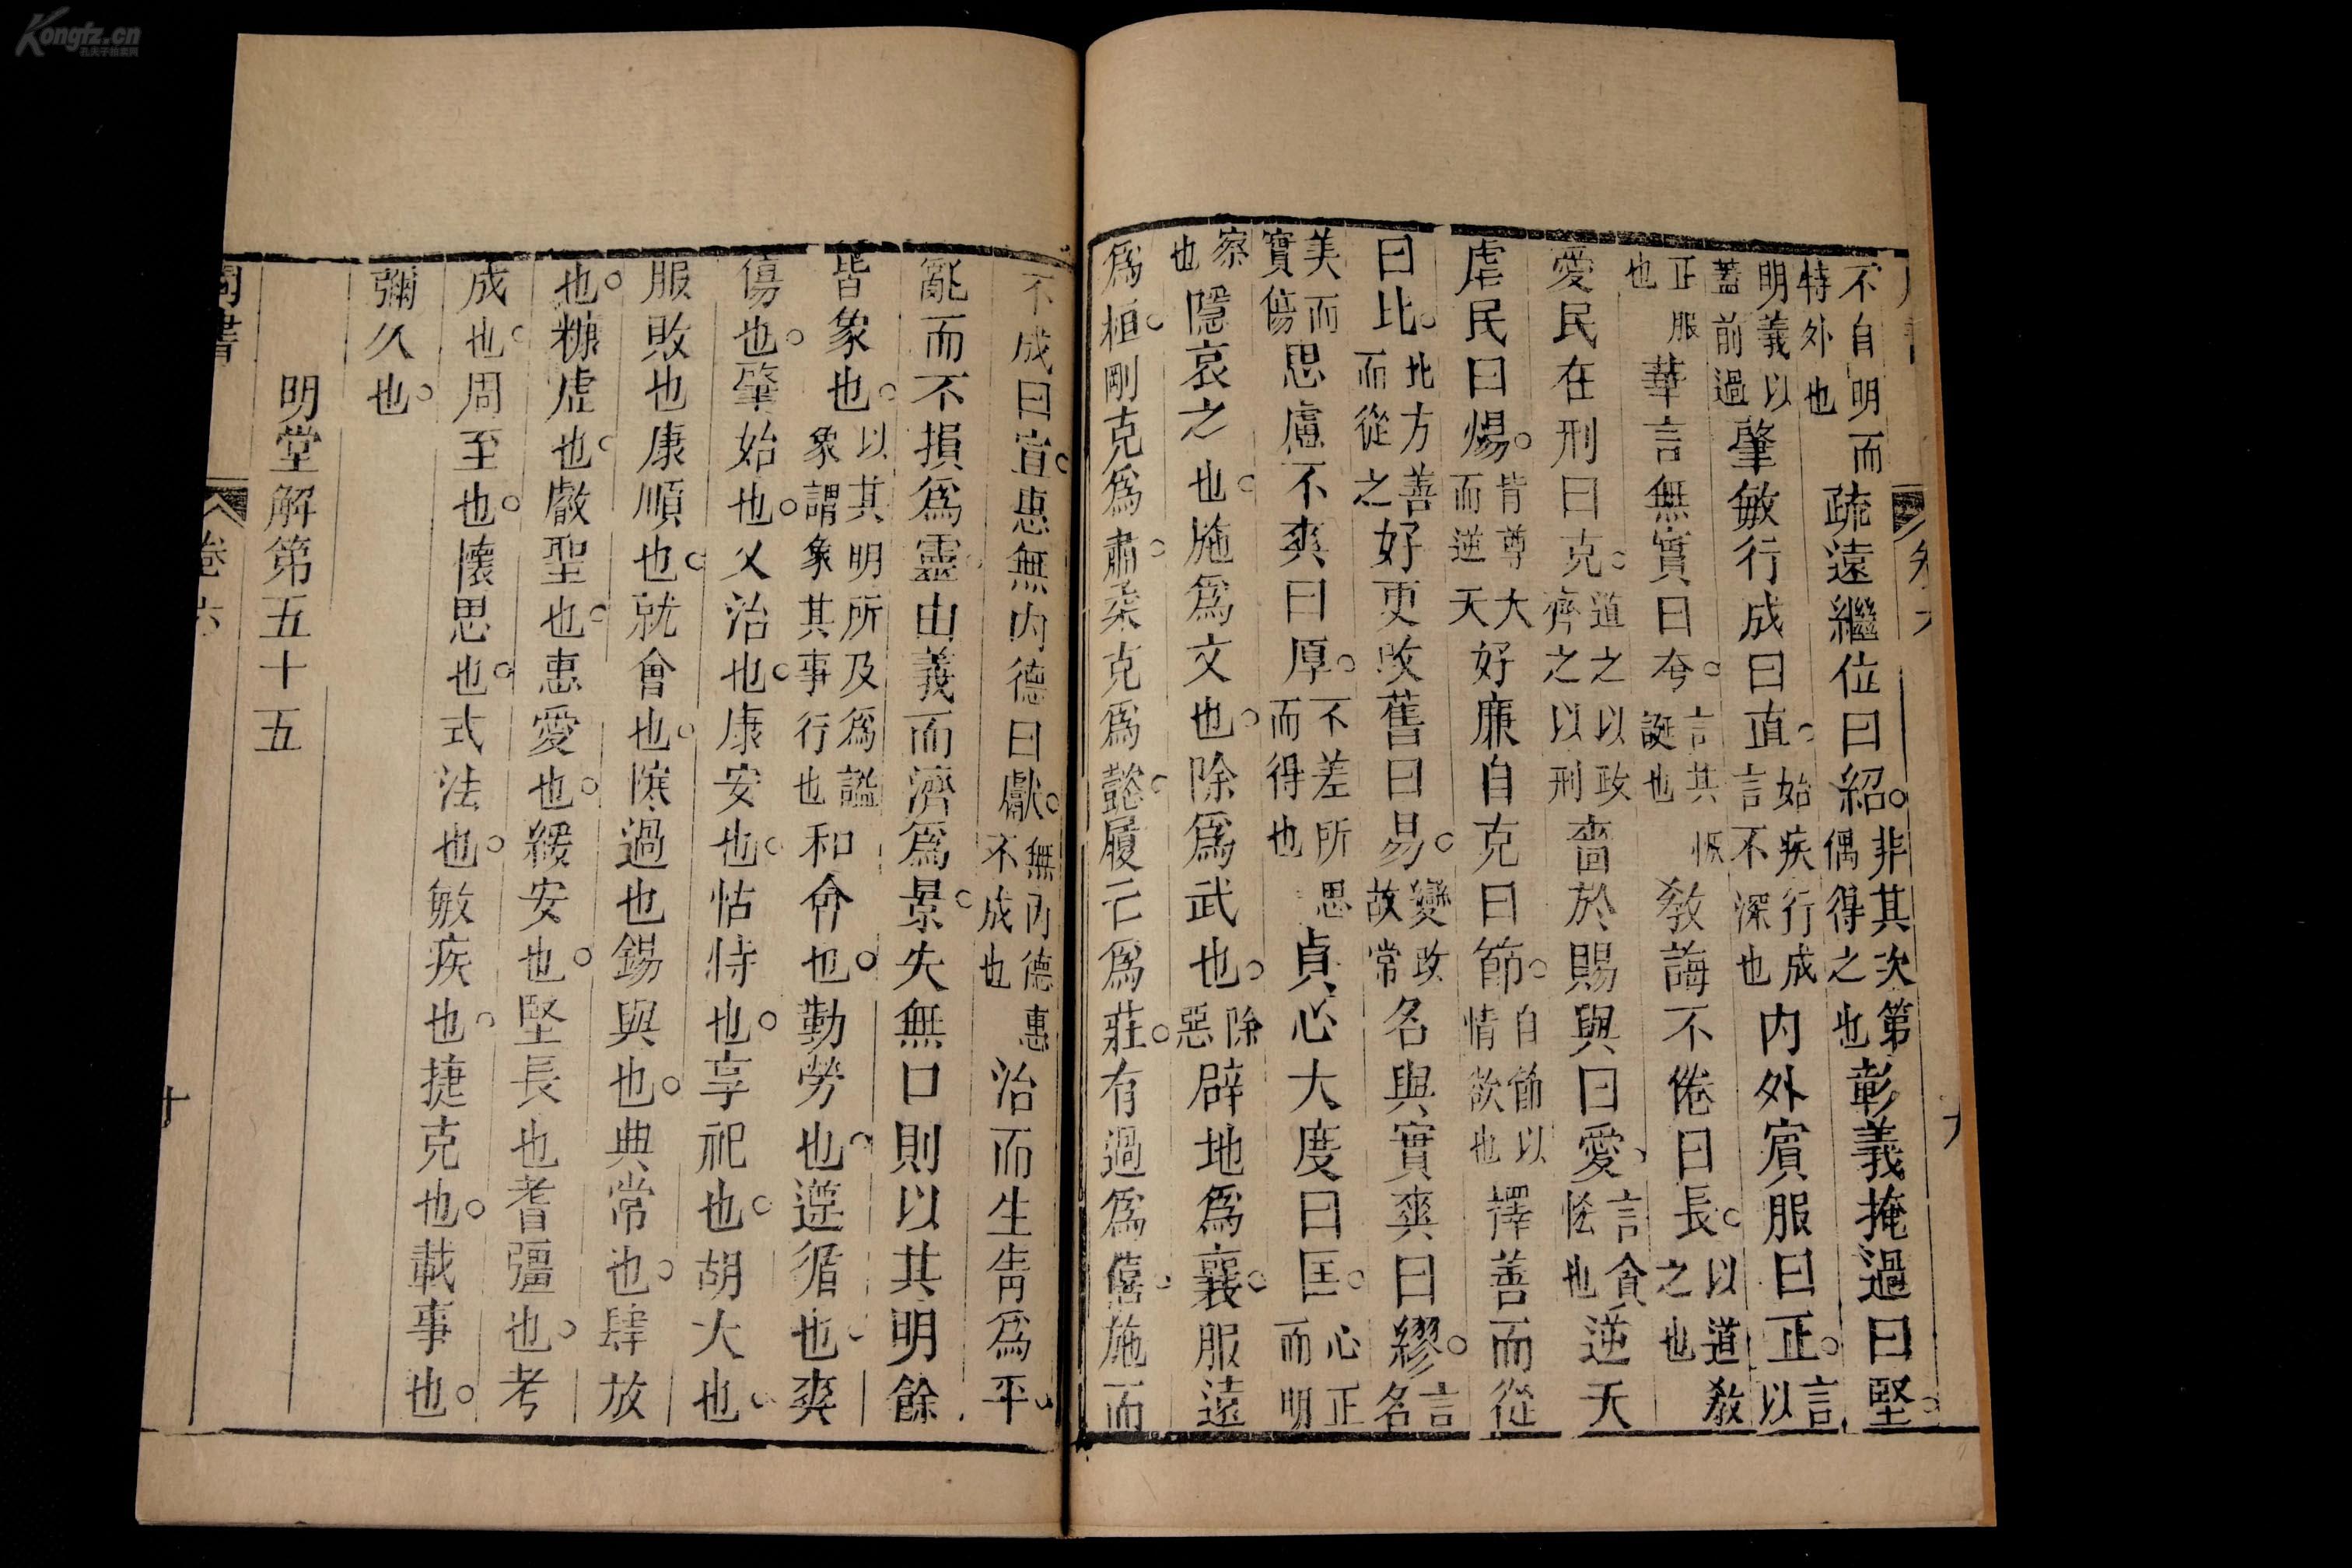 不自明而特外也疏遠繼位曰紹。非其次第偶得之也彰義掩過曰堅。
明義以蓋前過肇敏行成曰直。始疾行成言不深也內外賓服曰正。言以
正服也華言無實曰夸。言其恢誕也教誨不倦曰長。以道教之也
愛民在刑曰克。道之以政齊之以刑嗇於賜與曰愛、言貪恡也逆天
虐民曰煬。背尊大而逆天好廉自克曰節。自節以情欲也擇善而從
曰比。比方善而從之好更改舊曰易。變改故常名與實爽曰繆。言名
美而實傷思慮不爽曰厚。不差所思而得也貞心大度曰匡。心正而明
察也隱哀之也。施爲文也。除爲武也。除惡辟地爲襄。服遠
爲桓。剛克爲肅。柔克爲懿。履己爲莊。有過爲僖。施而
不成曰宣。惠無內德曰獻。無內德惠不成也治而生眚爲平。
亂而不損爲靈。由義而濟爲景。失無口則以其明餘
皆象也。以其明所及爲謚象謂象其事行也和會也。勤勞也。遵循也。爽
傷也。肇始也。乂治也。康安也。怙恃也。享祀也。胡大也。
服敗也康順也。就會也。㥶過也錫與也。典常也。肆放
也。糠虛也。叡聖也。惠愛也。綏安也。堅長也耆彊也。考
成也。周至也。懷思也。式法也。敏疾也。捷克也。載事也。
彌久也。
明堂解第五十五
周書 卷六 十